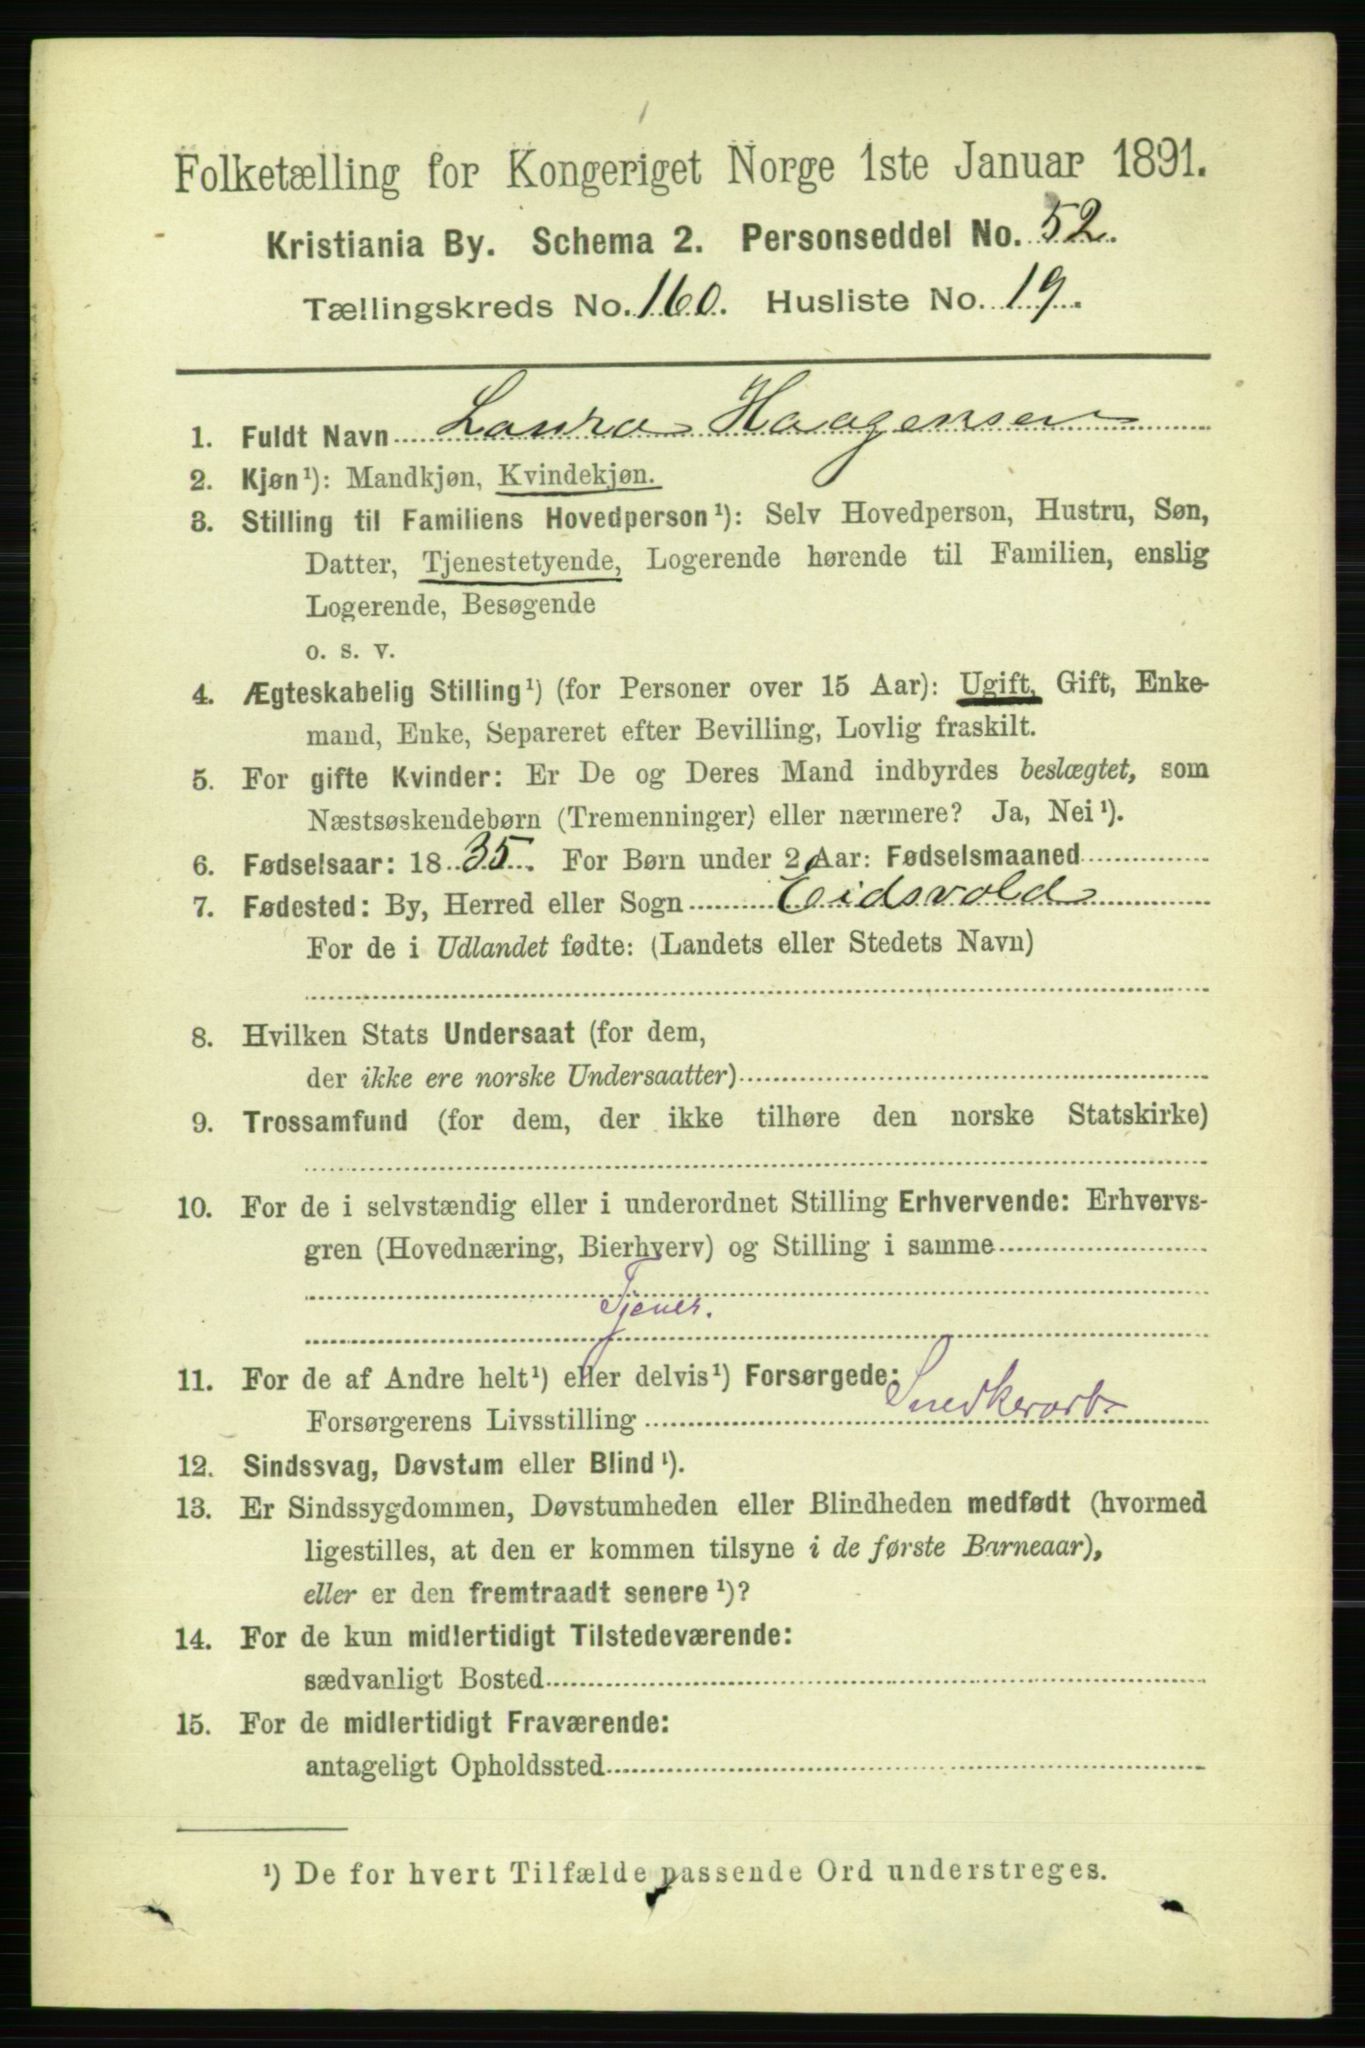 Folketælling for Kongeriget Norge 1ste Januar 1891.
Kristiania By. Schema 2. Personseddel No. 52.
Tællingskreds No. 160. Husliste No. 19.
1. Fuldt Navn Laura Haagensen
2. Kjøn¹): Mandkjøn, Kvindekjøn.
3. Stilling til Familiens Hovedperson¹): Selv Hovedperson, Hustru, Søn,
Datter, Tjenestetyende, Logerende hørende til Familien, enslig
Logerende, Besøgende
o. s. v.
4. Ægteskabelig Stilling¹) (for Personer over 15 Aar): Ugift, Gift, Enke-
mand, Enke, Separeret efter Bevilling, Lovlig fraskilt.
5. For gifte Kvinder: Er De og Deres Mand indbyrdes beslægtet, som
Næstsøskendebørn (Tremenninger) eller nærmere? Ja, Nei¹).
6. Fødselsaar: 1835. For Børn under 2 Aar: Fødselsmaaned
7. Fødested: By, Herred eller Sogn Eidsvold
For de i Udlandet fødte: (Landets eller Stedets Navn)
8. Hvilken Stats Undersaat (for dem,
der ikke ere norske Undersaatter)
9. Trossamfund (for dem, der ikke tilhøre den norske Statskirke)
10. For de i selvstændig eller i underordnet Stilling Erhvervende: Erhvervs-
gren (Hovednæring, Bierhverv) og Stilling i samme
Tjener.
11. For de af Andre helt¹) eller delvis¹) Forsørgede:
Forsørgerens Livsstilling Snedkerarb
12. Sindssvag, Døvstum eller Blind¹).
13. Er Sindssygdommen, Døvstumheden eller Blindheden medfødt (hvormed
ligestilles, at den er kommen tilsyne i de første Barneaar),
eller er den fremtraadt senere¹)?
14. For de kun midlertidigt Tilstedeværende:
sædvanligt Bosted
15. For de midlertidigt Fraværende:
antageligt Opholdssted
¹) De for hvert Tilfælde passende Ord understreges.